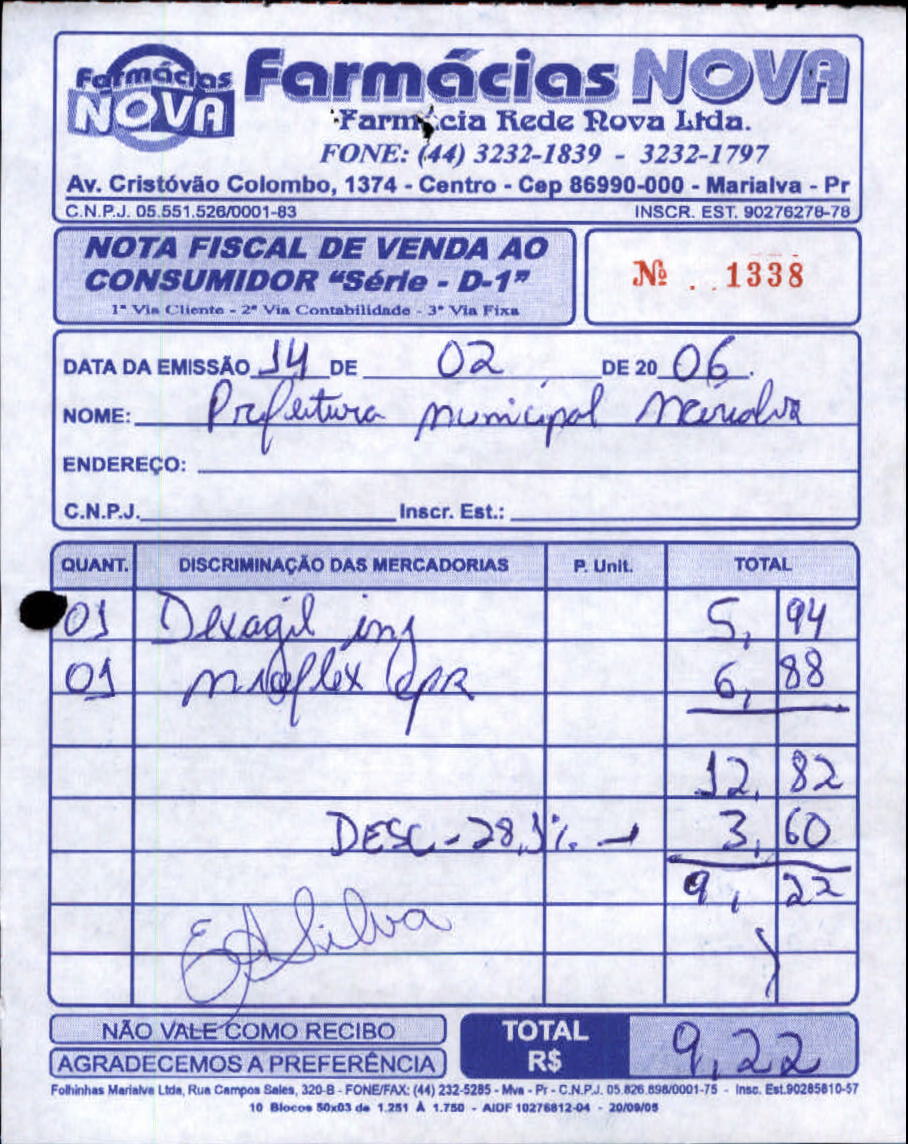 Farmácias
NOVA
Farmácias NOVA
Farmácia Rede Nova Ltda.
FONE: (44) 3232-1839 - 3232-1797
Av. Cristóvão Colombo, 1374 - Centro - Cep 86990-000 - Marialva - Pr
C.N.P.J. 05.551.526/0001-83 INSCR. EST. 90276278-78
NOTA FISCAL DE VENDA AO
CONSUMIDOR "Série - D-1"
1ª Via Cliente - 2ª Via Contabilidade - 3ª Via Fixa
Nº 1338
DATA DA EMISSÃO 14 DE 02 DE 20 06.
NOME: Prefeitura Municipal Marialva
ENDEREÇO:
C.N.P.J. Inscr. Est.:
QUANT. DISCRIMINAÇÃO DAS MERCADORIAS P. Unit. TOTAL
01 Dexagil inj 5,94
01 Mioflex cpr 6,88
12,82
DESC - 28,1% → 3,60
9,22
EASilva
NÃO VALE COMO RECIBO
AGRADECEMOS A PREFERÊNCIA
TOTAL
R$ 9,22
Folhinhas Marialva Ltda, Rua Campos Sales, 320-B - FONE/FAX: (44) 232-5285 - Mva - Pr - C.N.P.J. 05.826.898/0001-75 - Insc. Est.90285810-57
10 Blocos 50x03 de 1.251 À 1.750 - AIDF 10276812-04 - 20/09/05